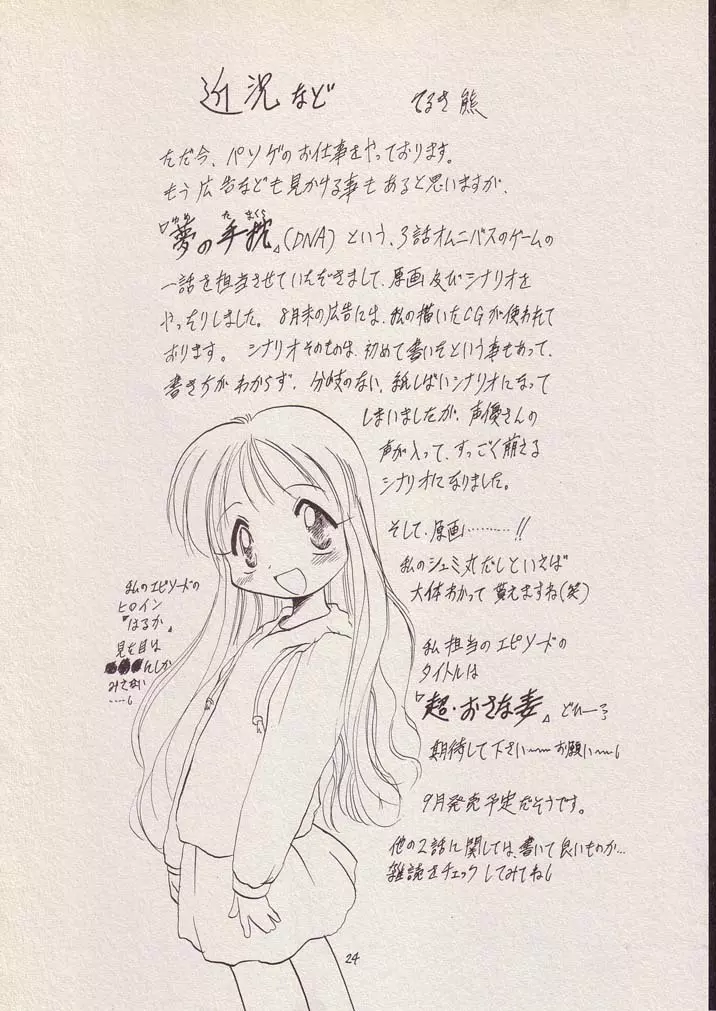 近況など
てるき熊
ただ今、パソゲのお仕事をやっております。
もう広告なども見かける事もあると思いますが、
『夢の手枕』(DNA)という、3話オムニバスのゲームの
ゆめ た まくら
一話を担当させていただきまして、原画及びシナリオを
やったりしました。8月末の広告には、私の描いたCGが使われて
おります。シナリオそのものは、初めて書いたという事もあって、
書き方がわからず、分岐のない、紙しばいシナリオになって
しまいましたが、声優さんの
声が入って、すっごく萌える
シナリオになりました。
そして、原画………!!
私のシュミ丸だしといえば
大体わかって貰えますね(笑)
私のエピソードの
ヒロイン
『はるか』
見た目は
んしか
みえない
私担当のエピソードの
タイトルは
『超・おさな妻』どひーっ
期待して下さい〜〜お願い〜
9月発売予定だそうです。
他の2話に関しては、書いて良いものか…
雑誌をチェックしてみてね
24